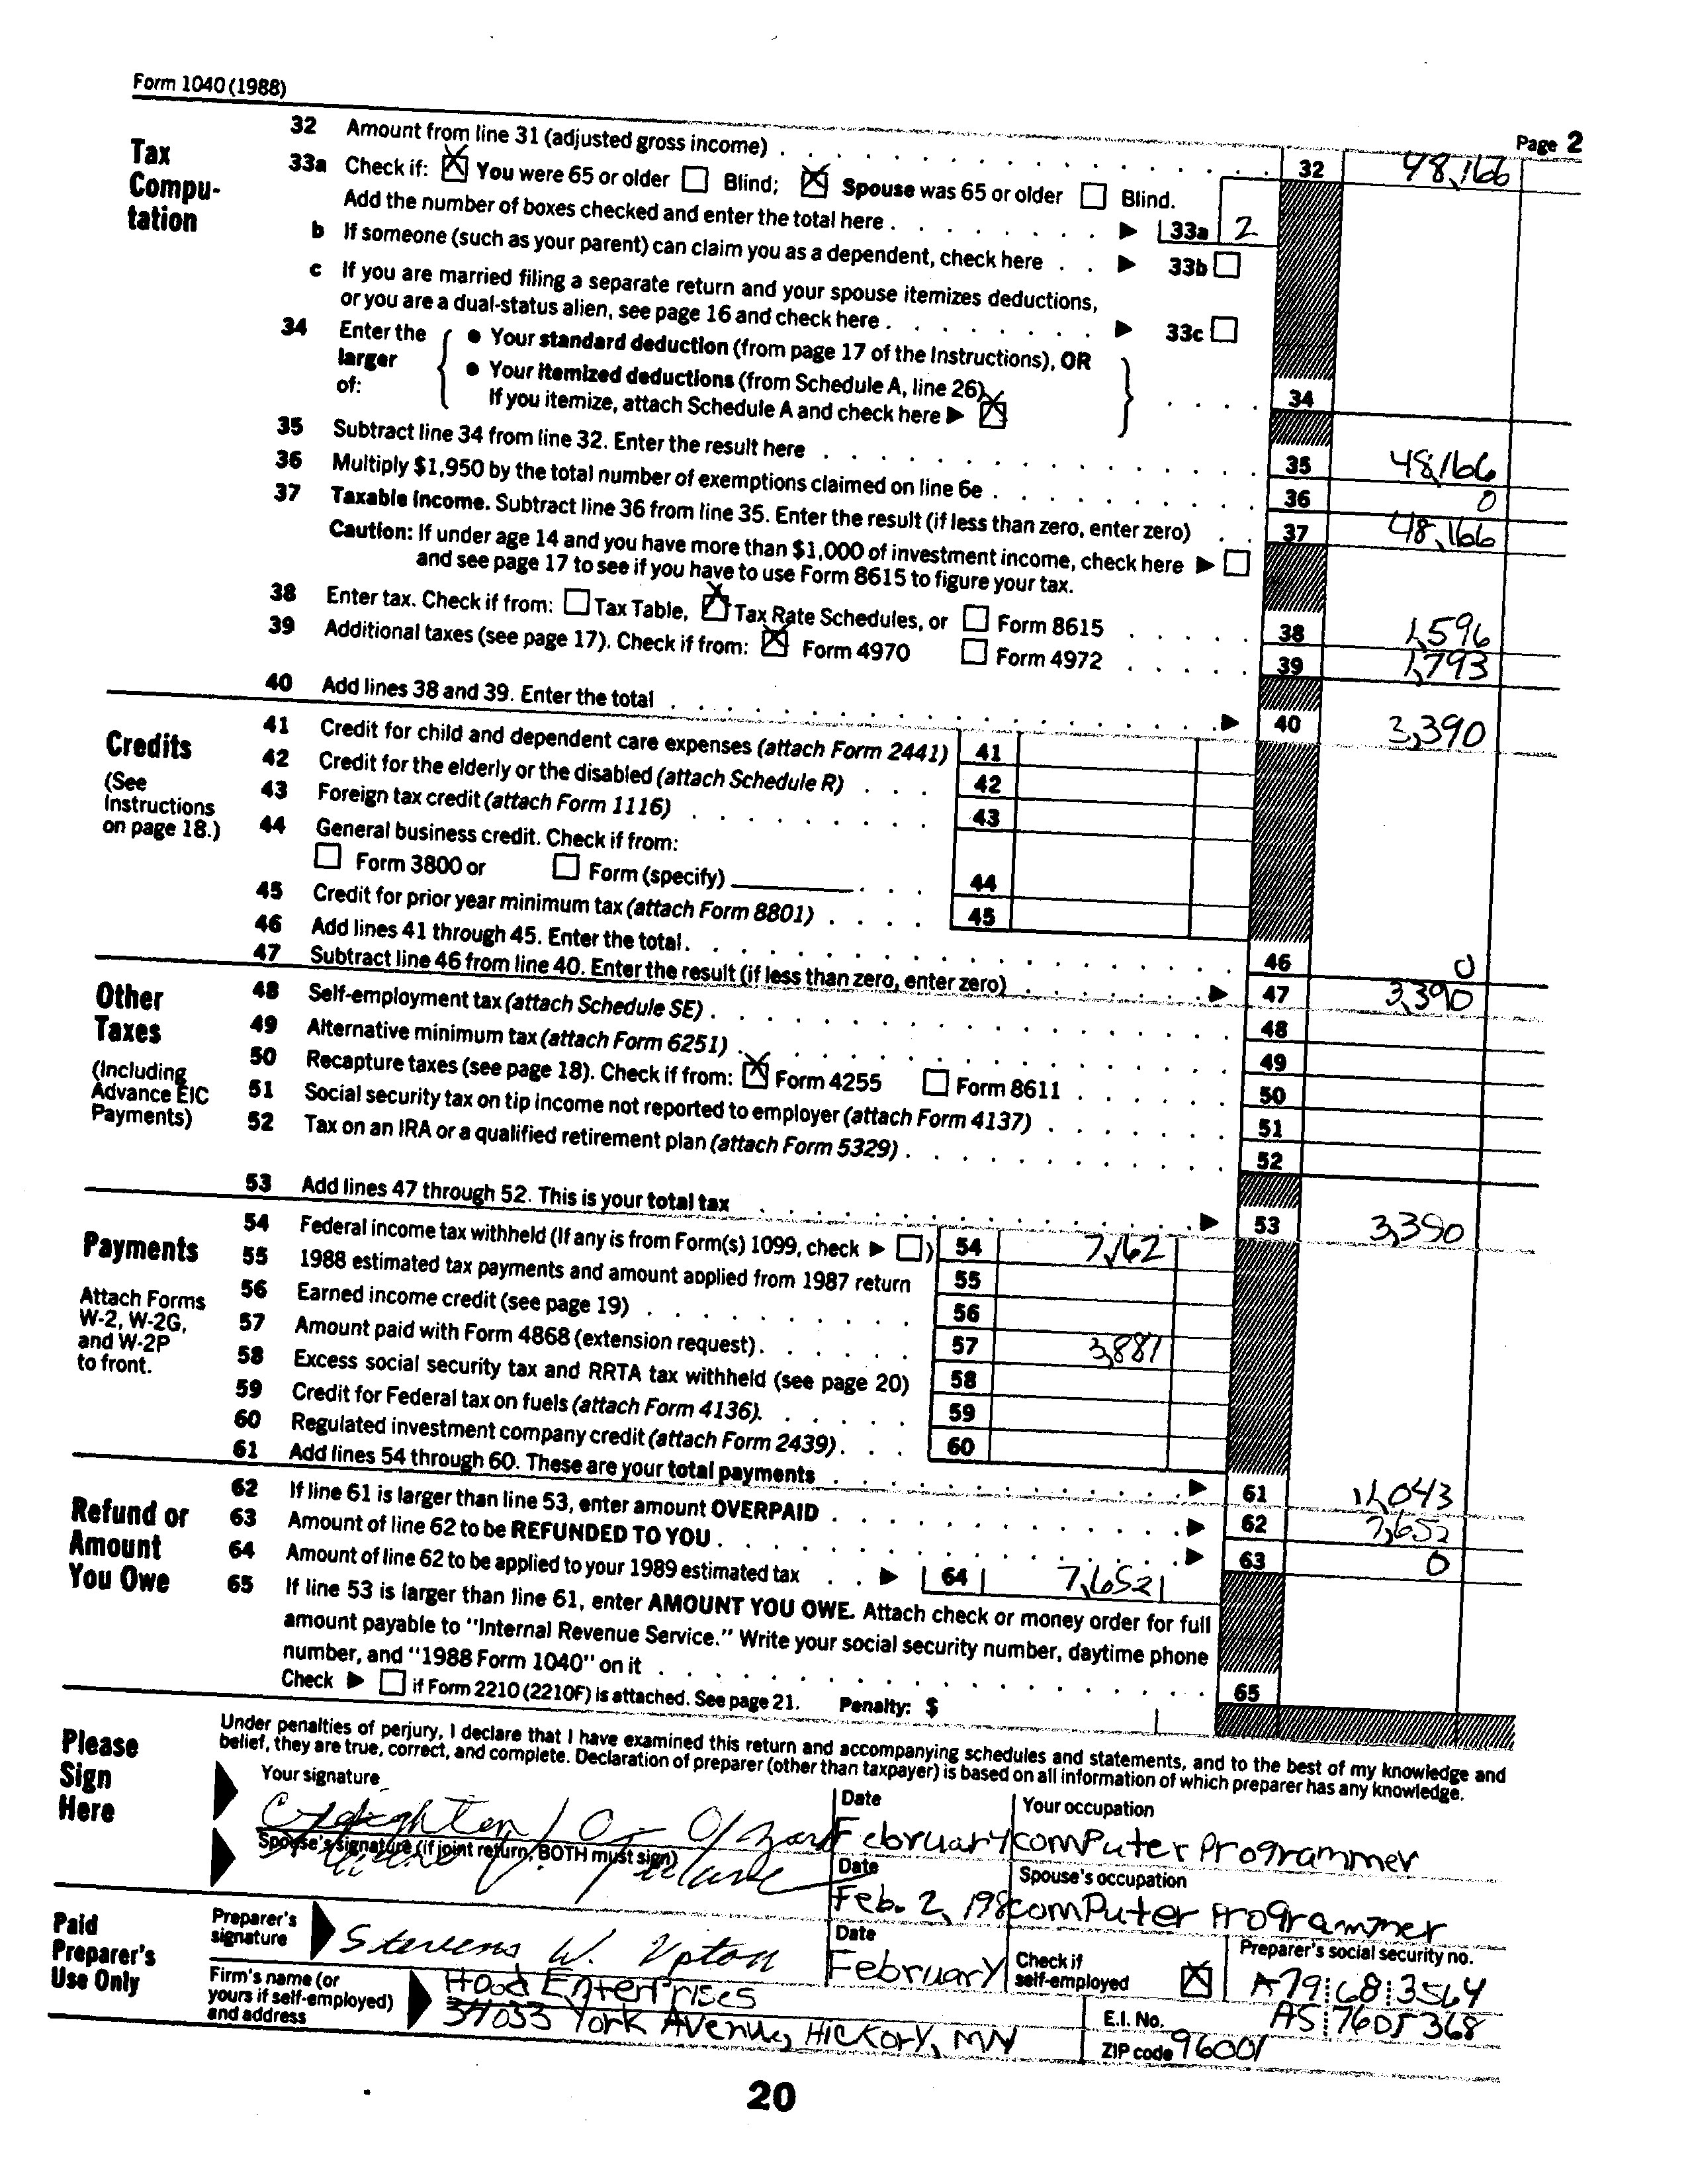 Form 1040 (1988)
Page 2
Tax Compu-tation
32 Amount from line 31 (adjusted gross income) 32 48,166
33a Check if: ☒ You were 65 or older ☐ Blind; ☒ Spouse was 65 or older ☐ Blind.
Add the number of boxes checked and enter the total here ▶ 33a 2
b If someone (such as your parent) can claim you as a dependent, check here ▶ 33b ☐
c If you are married filing a separate return and your spouse itemizes deductions,
or you are a dual-status alien, see page 16 and check here ▶ 33c ☐
34 Enter the larger of: ● Your standard deduction (from page 17 of the Instructions), OR
● Your itemized deductions (from Schedule A, line 26)
If you itemize, attach Schedule A and check here ▶ ☒ 34
35 Subtract line 34 from line 32. Enter the result here 35 48,166
36 Multiply $1,950 by the total number of exemptions claimed on line 6e 36 0
37 Taxable income. Subtract line 36 from line 35. Enter the result (if less than zero, enter zero) 37 48,166
Caution: If under age 14 and you have more than $1,000 of investment income, check here ▶ ☐
and see page 17 to see if you have to use Form 8615 to figure your tax.
38 Enter tax. Check if from: ☐ Tax Table, ☒ Tax Rate Schedules, or ☐ Form 8615 38 1,596
39 Additional taxes (see page 17). Check if from: ☒ Form 4970 ☐ Form 4972 39 1,793
40 Add lines 38 and 39. Enter the total ▶ 40 3,390
Credits
(See Instructions on page 18.)
41 Credit for child and dependent care expenses (attach Form 2441) 41
42 Credit for the elderly or the disabled (attach Schedule R) 42
43 Foreign tax credit (attach Form 1116) 43
44 General business credit. Check if from:
☐ Form 3800 or ☐ Form (specify) 44
45 Credit for prior year minimum tax (attach Form 8801) 45
46 Add lines 41 through 45. Enter the total 46 0
47 Subtract line 46 from line 40. Enter the result (if less than zero, enter zero) ▶ 47 3,390
Other Taxes
(Including Advance EIC Payments)
48 Self-employment tax (attach Schedule SE) 48
49 Alternative minimum tax (attach Form 6251) 49
50 Recapture taxes (see page 18). Check if from: ☒ Form 4255 ☐ Form 8611 50
51 Social security tax on tip income not reported to employer (attach Form 4137) 51
52 Tax on an IRA or a qualified retirement plan (attach Form 5329) 52
53 Add lines 47 through 52. This is your total tax ▶ 53 3,390
Payments
Attach Forms W-2, W-2G, and W-2P to front.
54 Federal income tax withheld (If any is from Form(s) 1099, check ▶ ☐) 54 7,162
55 1988 estimated tax payments and amount applied from 1987 return 55
56 Earned income credit (see page 19) 56
57 Amount paid with Form 4868 (extension request) 57 3,881
58 Excess social security tax and RRTA tax withheld (see page 20) 58
59 Credit for Federal tax on fuels (attach Form 4136) 59
60 Regulated investment company credit (attach Form 2439) 60
61 Add lines 54 through 60. These are your total payments ▶ 61 11,043
Refund or Amount You Owe
62 If line 61 is larger than line 53, enter amount OVERPAID ▶ 62 7,652
63 Amount of line 62 to be REFUNDED TO YOU ▶ 63 0
64 Amount of line 62 to be applied to your 1989 estimated tax ▶ 64 7,652
65 If line 53 is larger than line 61, enter AMOUNT YOU OWE. Attach check or money order for full
amount payable to "Internal Revenue Service." Write your social security number, daytime phone
number, and "1988 Form 1040" on it 65
Check ▶ ☐ if Form 2210 (2210F) is attached. See page 21. Penalty: $
Please Sign Here
Under penalties of perjury, I declare that I have examined this return and accompanying schedules and statements, and to the best of my knowledge and
belief, they are true, correct, and complete. Declaration of preparer (other than taxpayer) is based on all information of which preparer has any knowledge.
Your signature Date Your occupation
February computer programmer
Spouse's signature (if joint return, BOTH must sign) Date Spouse's occupation
Feb. 2, 198 computer programmer
Paid Preparer's Use Only
Preparer's signature Stevens W. Upton Date February Check if self-employed ☒ Preparer's social security no. A79 68 3564
Firm's name (or yours if self-employed) and address Hood Enterprises E.I. No. AS 7605368
34033 York Avenue, Hickory, MN ZIP code 96001
20